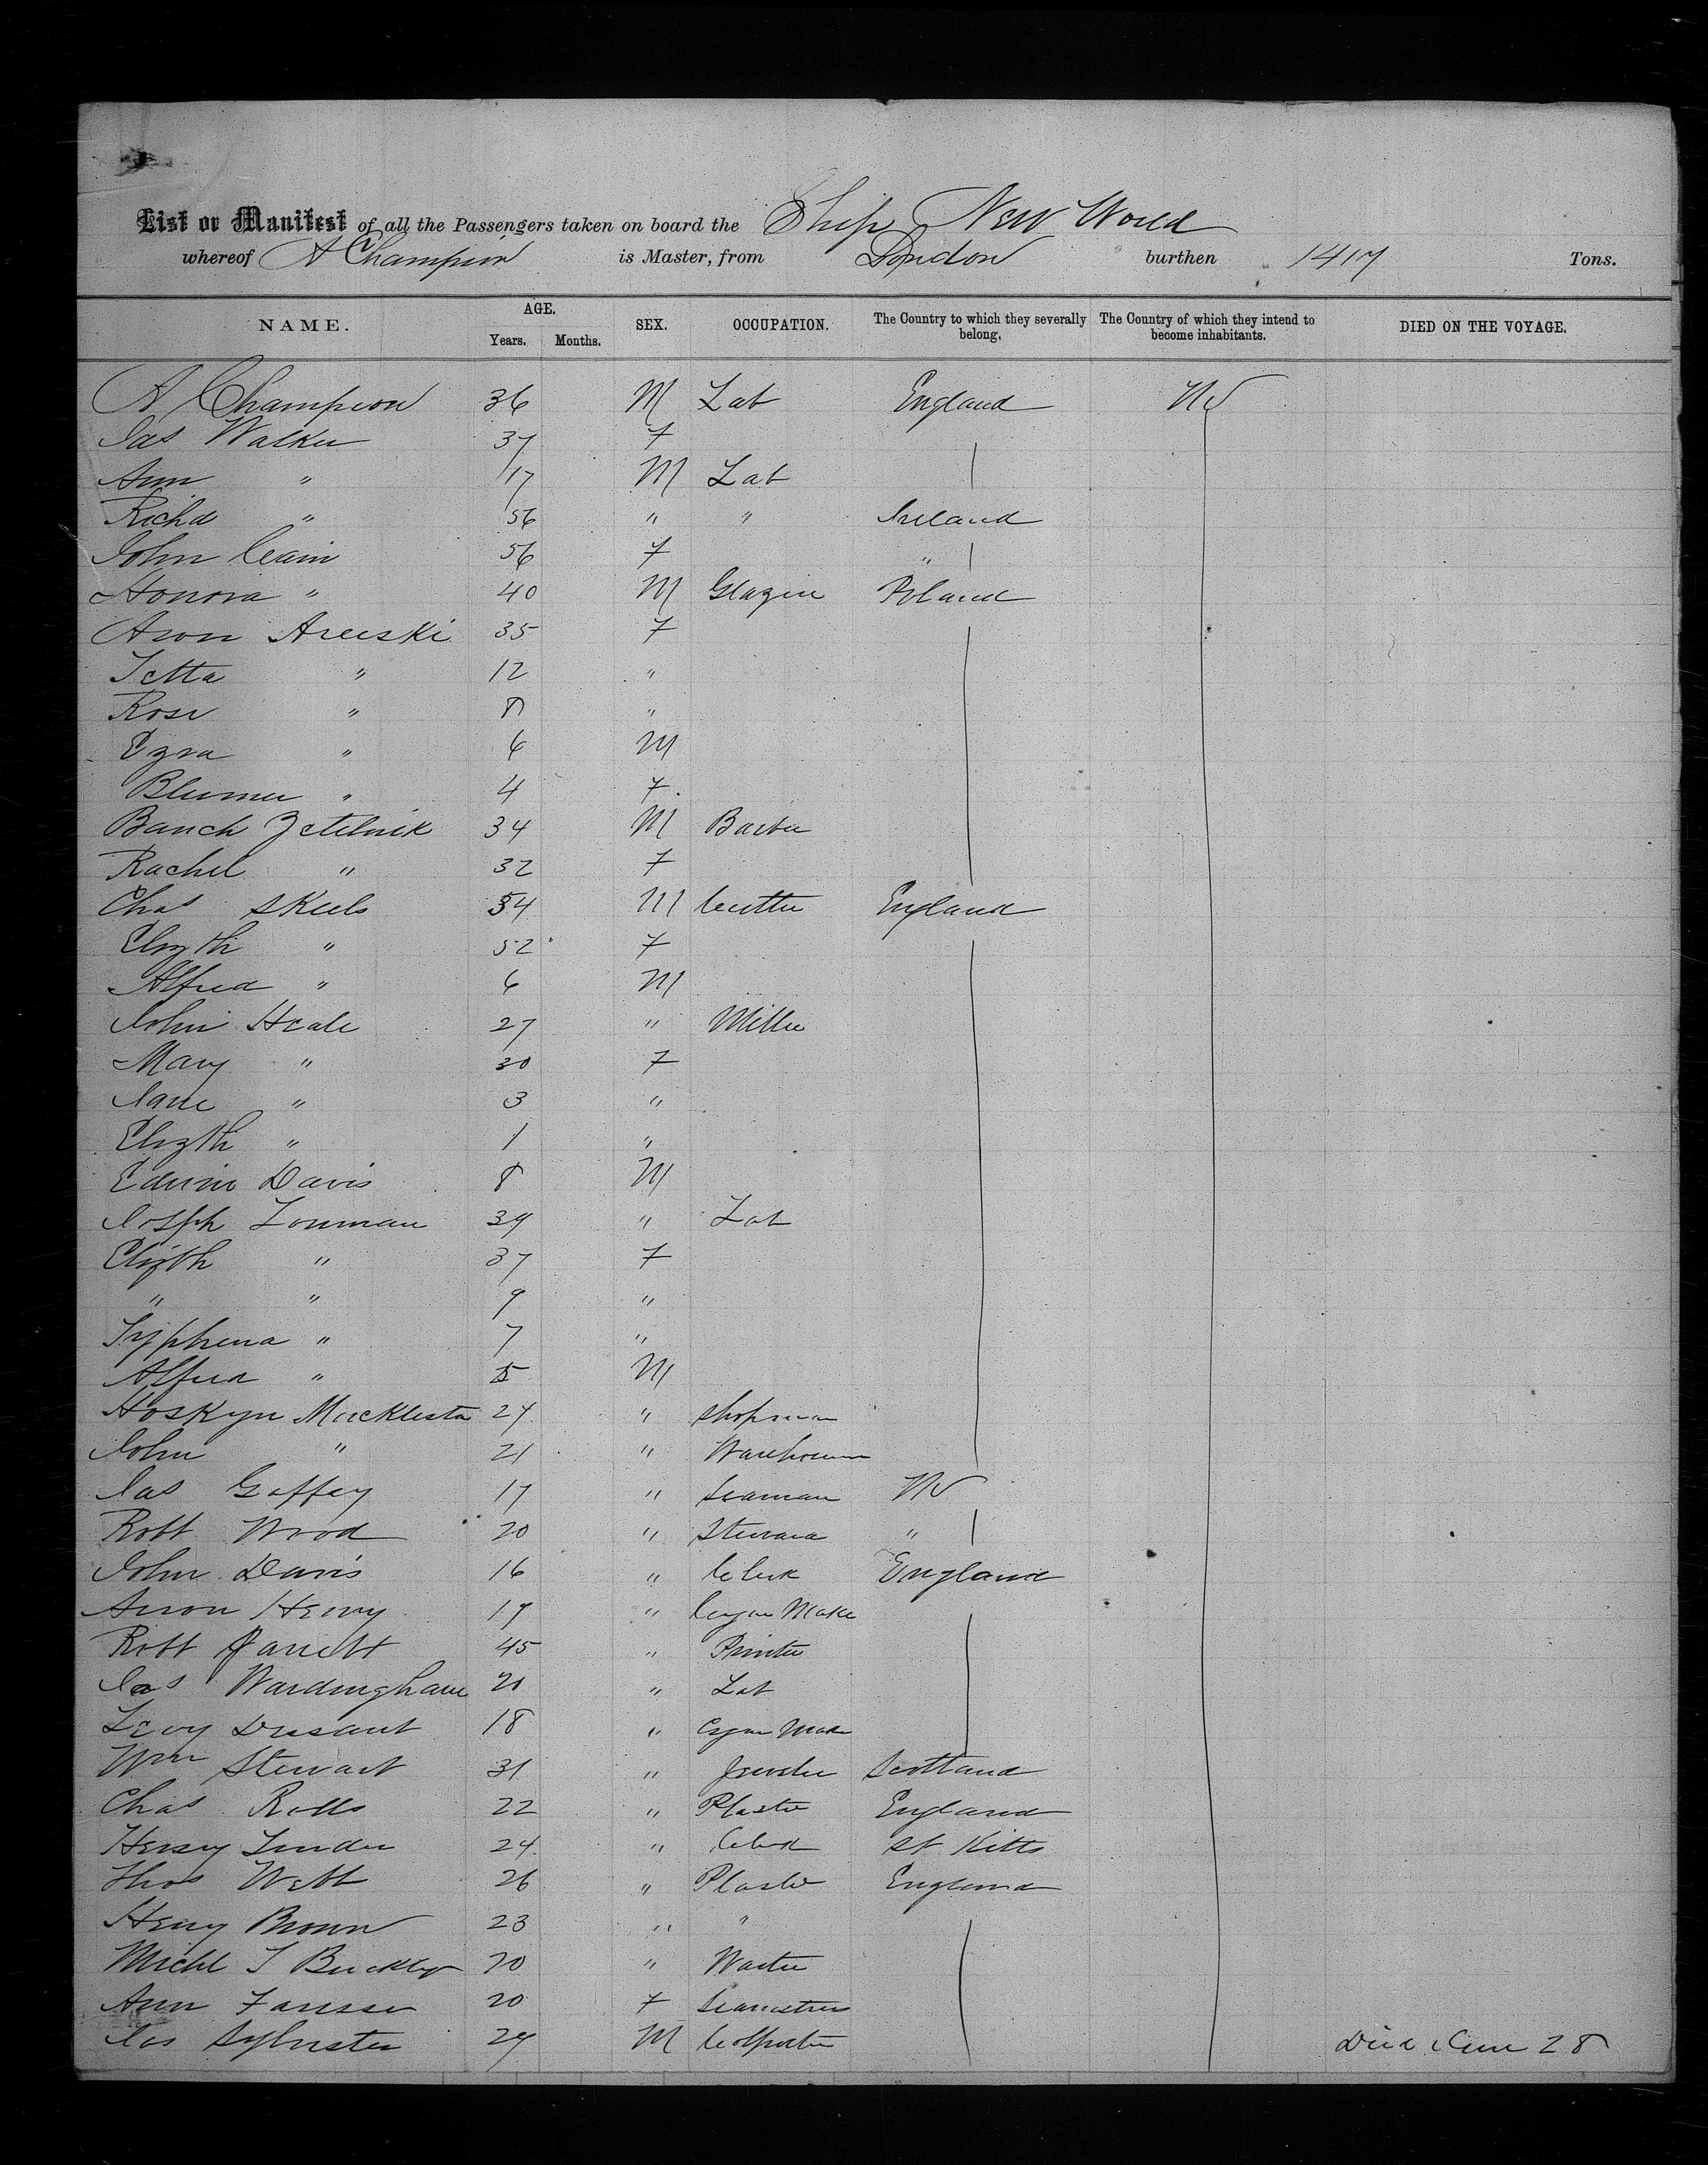 List or Manifest of all the Passengers taken on board the Ship New World
whereof A Champion is Master, from London burthen 1417 Tons.
NAME. AGE. Years. Months. SEX. OCCUPATION. The Country to which they severally belong. The Country of which they intend to become inhabitants. DIED ON THE VOYAGE.
A Champion 36 M Lab England US
Jas Walker 37 F
Ann " 17 M Lab
Richd " 56 " " Ireland
John Crain 56 F "
Honora " 40 M Glazier Poland
Aron 35 F
Jetta " 12 "
Rose " 8 "
Ezra " 6 M
Blumer " 4 F
Zetelnik 34 M Barber
Rachel " 32 F
Chas Skeels 54 M Cutter England
Elizth " 52 F
Alfred " 6 M
John Heale 27 " Miller
Mary " 30 F
Jane " 3 "
Elizth " 1 "
Edwin Davis 8 M
Josph Lowman 39 " Lab
Elizth " 37 F
" " 9 "
Tryphena " 7 "
Alfred " 5 M
Hoskyn 24 " Shopman
John " 21 " Warehouse
Jas Gaffey 17 " Seaman US
Robt Wood 20 " Steward "
John Davis 16 " Clerk England
Henry " Maker
Robt Jarrett 45 " Printer
Jas Wardingham 20 " Lab
Levy 18 "
Wm Stewart 31 " Jeweler Scotland
Chas Rolls 22 " Plaster England
Henry 24 " Clerk St Kitts
Thos Webb 26 " Plaster England
Henry Brown 23 " "
Michl J Buckley 20 " Waiter
Ann 20 F Seamstress
Jas Sylvester 29 M Died June 28